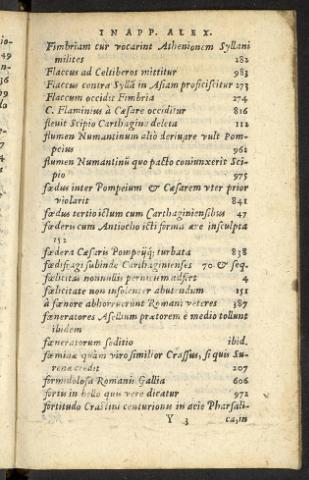 IN APP. ALEX.
Fimbriam cur vocarint Athenionem Syllani
milites 282
Flaccus ad Celtiberos mittitur 983
Flaccus contra Syllā in Asiam proficiscitur 273
Flaccum occidit Fimbria 274
C. Flaminius à Cæsare occiditur 816
fleuit Scipio Carthagine deleta 112
flumen Numantinum aliò deriuare vult Pom-
peius 961
flumen Numantinū quo pacto coniunxerit Sci-
pio 975
fœdus inter Pompeium & Cæsarem vter prior
violarit 841
fœdus tertio ictum cum Carthaginiensibus 47
fœderu cum Antiocho icti forma ære insculpta
152
fœdera Cæsaris Pompeÿq; turbata 838
fœdifragi subinde Carthaginienses 70 & seq.
fœlicitas nonnullis perniciem adfert 4
fœlicitate non insolenter abutendum 151
à fœnore abhorruerunt Romani veteres 387
fœneratores Asellium prætorem è medio tollunt
ibidem
fœneratorum seditio ibid.
fœminæ quàm viro similior Crassus, si quis Su-
renæ credit 207
formidolosa Romanis Gallia 606
fortis in bello quis vere dicatur 972
fortitudo Crastini centurionis in acie Pharsali-
Y 3 ca, in